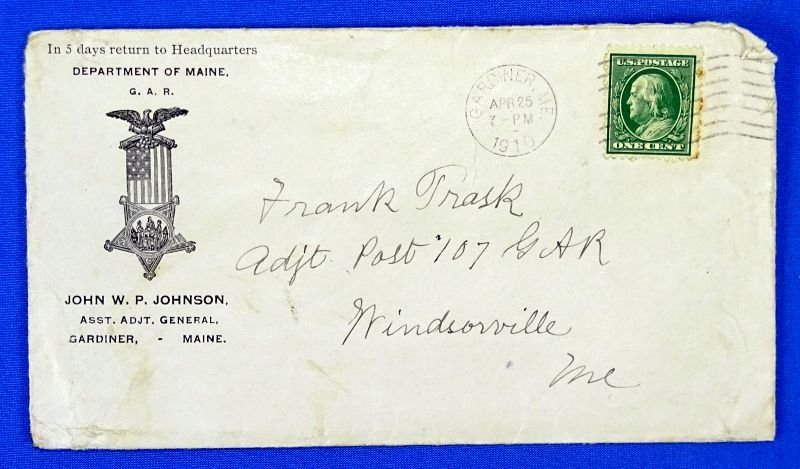 In 5 days return to Headquarters
DEPARTMENT OF MAINE,
G. A. R.
JOHN W. P. JOHNSON,
ASST. ADJT. GENERAL,
GARDINER, - MAINE.
GARDINER, ME.
APR 25
7 - PM
1910
U.S. POSTAGE
ONE CENT
Frank Trask
Adjt. Post 107 GAR
Windsorville
Me